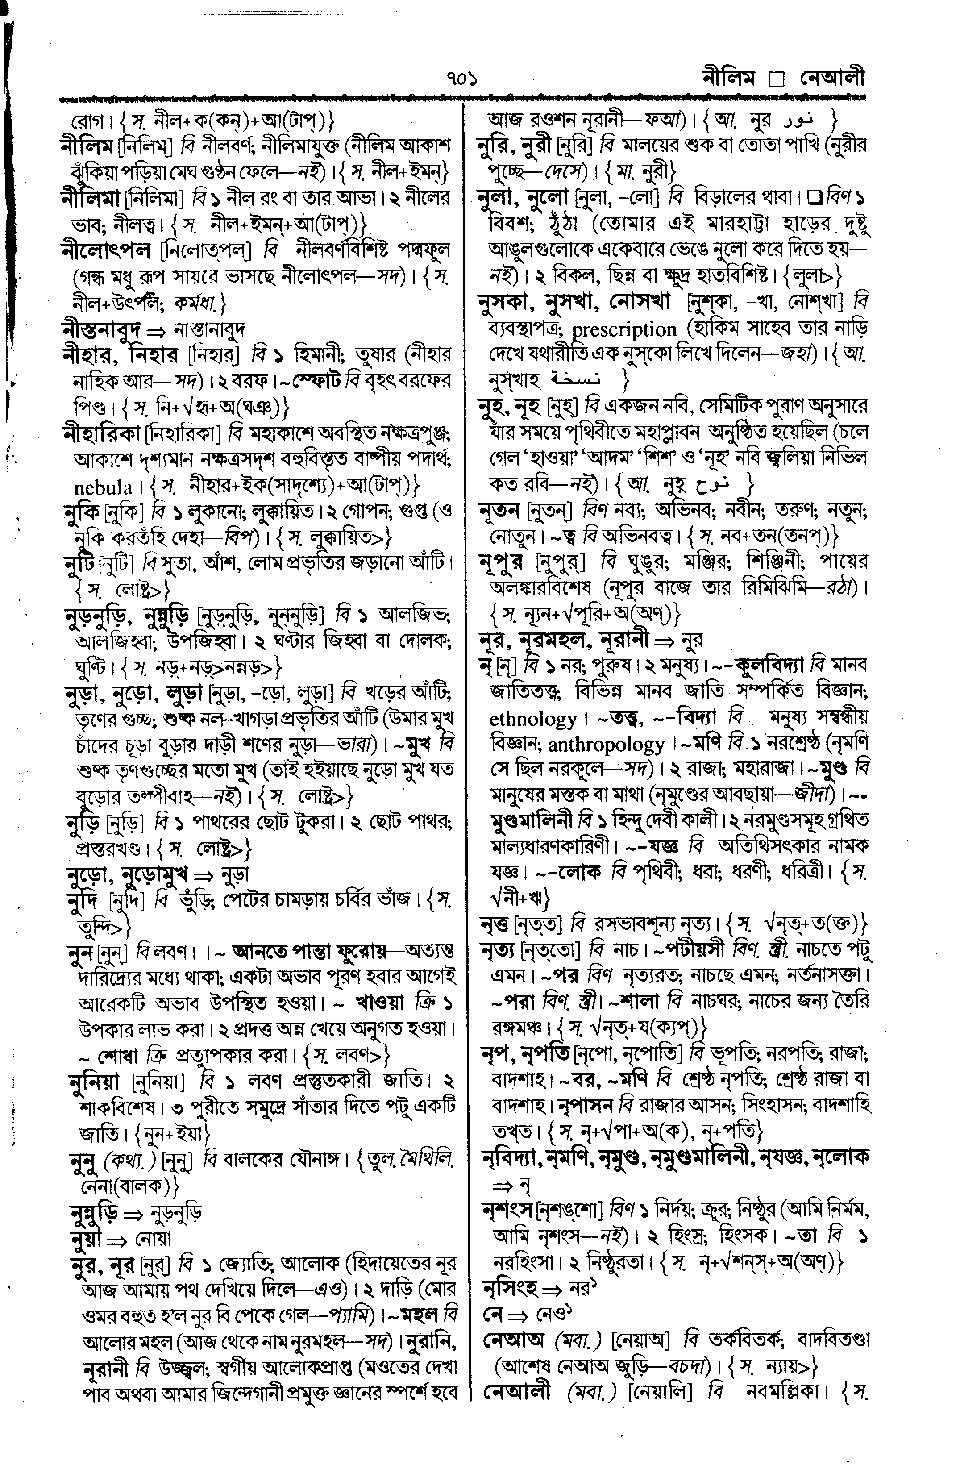 ৭০১
নীলিম □ নেআলী
রোগ। {স. নীল+ক(কন্)+আ(টাপ্)}
নীলিম [নিলিম্] বি নীলবর্ণ; নীলিমাযুক্ত (নীলিম আকাশ
ঝুঁকিয়া পড়িয়া মেঘ গুণ্ঠন ফেলে—নই)। {স. নীল+ইমন্}
নীলিমা [নিলিমা] বি ১ নীল রং বা তার আভা। ২ নীলের
ভাব; নীলত্ব। {স. নীল+ইমন্+আ(টাপ্)}
নীলোৎপল [নিলোত্‌পল্] বি নীলবর্ণবিশিষ্ট পদ্মফুল
(গন্ধ মধু রূপ সায়রে ভাসছে নীলোৎপল—সদ)। {স.
নীল+উৎপল; কর্মধা.}
নীস্তনাবুদ ⇒ নাস্তানাবুদ
নীহার, নিহার [নিহার্] বি ১ হিমানী; তুষার (নীহার
নাহিক আর—সদ)। ২ বরফ। ~স্ফোট বি বৃহৎ বরফের
পিণ্ড। {স. নি+√হৃ+অ(ঘঞ্)}
নীহারিকা [নিহারিকা] বি মহাকাশে অবস্থিত নক্ষত্রপুঞ্জ;
আকাশে দৃশ্যমান নক্ষত্রসদৃশ বহুবিস্তৃত বাষ্পীয় পদার্থ;
nebula। {স. নীহার+ইক(সাদৃশ্যে)+আ(টাপ্)}
নুকি [নুকি] বি ১ লুকানো; লুক্কায়িত। ২ গোপন; গুপ্ত (ও
নুকি করতঁহি দেহা—বিপ)। {স. লুক্কায়িত>}
নুটি [নুটি] বি সুতা, আঁশ, লোম প্রভৃতির জড়ানো আঁটি।
{স. লোষ্ট্র>}
নুড়নুড়ি, নুন্নুড়ি [নুড়নুড়ি, নুন্‌নুড়ি] বি ১ আলজিভ;
আলজিহ্বা; উপজিহ্বা। ২ ঘণ্টার জিহ্বা বা দোলক;
ঘুণ্টি। {স. নড়+নড়>নন্নড়>}
নুড়া, নুড়ো, লুড়া [নুড়া, -ড়ো, লুড়া] বি খড়ের আঁটি;
তৃণের গুচ্ছ; শুষ্ক নল-খাগড়া প্রভৃতির আঁটি (উমার মুখ
চাঁদের চূড়া বুড়ার দাড়ী শণের নুড়া—ভারা)। ~মুখ বি
শুষ্ক তৃণগুচ্ছের মতো মুখ (তাই হইয়াছে নুড়ো মুখ যত
বুড়োর তল্পীবাহ—নই)। {স. লোষ্ট্র>}
নুড়ি [নুড়ি] বি ১ পাথরের ছোট টুকরা। ২ ছোট পাথর;
প্রস্তরখণ্ড। {স. লোষ্ট্র>}
নুড়ো, নুড়োমুখ ⇒ নুড়া
নুদি [নুদি] বি ভুঁড়ি; পেটের চামড়ায় চর্বির ভাঁজ। {স.
তুন্দি>}
নুন [নুন্] বি লবণ। । ~ আনতে পান্তা ফুরোয়—অত্যন্ত
দারিদ্র্যের মধ্যে থাকা; একটা অভাব পূরণ হবার আগেই
আরেকটি অভাব উপস্থিত হওয়া। ~ খাওয়া ক্রি ১
উপকার লাভ করা। ২ প্রদত্ত অন্ন খেয়ে অনুগত হওয়া।
~ শোধা ক্রি প্রত্যুপকার করা। {স. লবণ>}
নুনিয়া [নুনিয়া] বি ১ লবণ প্রস্তুতকারী জাতি। ২
শাকবিশেষ। ৩ পুরীতে সমুদ্রে সাঁতার দিতে পটু একটি
জাতি। {নুন+ইয়া}
নুনু (কথ্য.) [নুনু] বি বালকের যৌনাঙ্গ। {তুল. মৈথিলি.
নেনা(বালক)}
নুন্নুড়ি ⇒ নুড়নুড়ি
নুয়া ⇒ নোয়া
নুর, নূর [নুর্] বি ১ জ্যোতি; আলোক (হিদায়েতের নূর
আজ আমায় পথ দেখিয়ে দিলে—এও)। ২ দাড়ি (মোর
ওমর বহুত হ'ল নুর বি পেকে গেল—প্যামি)। ~মহল বি
আলোর মহল (আজ থেকে নাম নূরমহল—সদ)। নুরানি,
নূরানী বি উজ্জ্বল; স্বর্গীয় আলোকপ্রাপ্ত (মওতের দেখা
পাব অথবা আমার জিন্দেগানী প্রমুক্ত জ্ঞানের স্পর্শে হবে
আজ রওশন নূরানী—ফআ)। {আ. নূর نور }
নুরি, নুরী [নুরি] বি মালয়ের শুক বা তোতা পাখি (নুরীর
পুচ্ছে—দেসে)। {মা. নুরী}
নুলা, নুলো [নুলা, -লো] বি বিড়ালের থাবা। □ বিণ ১
বিবশ; ঠুঁঠা (তোমার এই মারহাট্টা হাড়ের দুষ্টু
আঙুলগুলোকে একেবারে ভেঙে নুলো করে দিতে হয়—
নই)। ২ বিকল, ছিন্ন বা ক্ষুদ্র হাতবিশিষ্ট। {লুলা>}
নুসকা, নুসখা, নোসখা [নুশ্‌কা, -খা, নোশ্‌খা] বি
ব্যবস্থাপত্র; prescription (হাকিম সাহেব তার নাড়ি
দেখে যথারীতি এক নুস্‌কো লিখে দিলেন—জহা)। {আ.
নুস্‌খাহ نسخة }
নুহ, নূহ [নুহ্] বি একজন নবি, সেমিটিক পুরাণ অনুসারে
যাঁর সময়ে পৃথিবীতে মহাপ্লাবন অনুষ্ঠিত হয়েছিল (চলে
গেল 'হাওয়া' 'আদম' 'শিশ' ও 'নূহ' নবি জ্বলিয়া নিভিল
কত রবি—নই)। {আ. নূহ نوح }
নূতন [নুতন্] বিণ নব্য; অভিনব; নবীন; তরুণ; নতুন;
নোতুন। ~ত্ব বি অভিনবত্ব। {স. নব+তন(তনপ্)}
নূপুর [নুপুর্] বি ঘুঙুর; মঞ্জির; শিঞ্জিনী; পায়ের
অলঙ্কারবিশেষ (নূপুর বাজে তার রিমিঝিমি—রঠা)।
{স. ন্যূন+√পূরি+অ(অণ্)}
নূর, নূরমহল, নূরানী ⇒ নুর
নৃ [নৃ] বি ১ নর; পুরুষ। ২ মনুষ্য। ~-কুলবিদ্যা বি মানব
জাতিতত্ত্ব; বিভিন্ন মানব জাতি সম্পর্কিত বিজ্ঞান;
ethnology। ~তত্ত্ব, ~-বিদ্যা বি মনুষ্য সম্বন্ধীয়
বিজ্ঞান; anthropology। ~মণি বি ১ নরশ্রেষ্ঠ (নৃমণি
সে ছিল নরকূলে—সদ)। ২ রাজা; মহারাজা। ~মুণ্ড বি
মানুষের মস্তক বা মাথা (নৃমুণ্ডের আবছায়া—জীদা)। ~-
মুণ্ডমালিনী বি ১ হিন্দু দেবী কালী। ২ নরমুণ্ডসমূহ গ্রথিত
মাল্যধারণকারিণী। ~-যজ্ঞ বি অতিথিসৎকার নামক
যজ্ঞ। ~-লোক বি পৃথিবী; ধরা; ধরণী; ধরিত্রী। {স.
√নী+ঋ}
নৃত্ত [নৃত্‌ত] বি রসভাবশূন্য নৃত্য। {স. √নৃত্+ত(ক্ত)}
নৃত্য [নৃত্‌তো] বি নাচ। ~পটীয়সী বিণ. স্ত্রী. নাচতে পটু
এমন। ~পর বিণ নৃত্যরত; নাচছে এমন; নর্তনাসক্ত।
~পরা বিণ. স্ত্রী। ~শালা বি নাচঘর; নাচের জন্য তৈরি
রঙ্গমঞ্চ। {স. √নৃত্+য(ক্যপ্)}
নৃপ, নৃপতি [নৃপো, নৃপোতি] বি ভূপতি; নরপতি; রাজা;
বাদশাহ। ~বর, ~মণি বি শ্রেষ্ঠ নৃপতি; শ্রেষ্ঠ রাজা বা
বাদশাহ। নৃপাসন বি রাজার আসন; সিংহাসন; বাদশাহি
তখ্‌ত। {স. নৃ+√পা+অ(ক), নৃ+পতি}
নৃবিদ্যা, নৃমণি, নৃমুণ্ড, নৃমুণ্ডমালিনী, নৃযজ্ঞ, নৃলোক
⇒ নৃ
নৃশংস [নৃশঙ্‌শো] বিণ ১ নির্দয়; ক্রূর; নিষ্ঠুর (আমি নির্মম,
আমি নৃশংস—নই)। ২ হিংস্র; হিংসক। ~তা বি ১
নরহিংসা। ২ নিষ্ঠুরতা। {স. নৃ+√শন্‌স্+অ(অণ্)}
নৃসিংহ ⇒ নর১
নে ⇒ নেও১
নেআঅ (মবা.) [নেয়াঅ] বি তর্কবিতর্ক; বাদবিতণ্ডা
(আশেষ নেআঅ জুড়ি—বচদা)। {স. ন্যায়>}
নেআলী (মবা.) [নেয়ালি] বি নবমল্লিকা। {স.